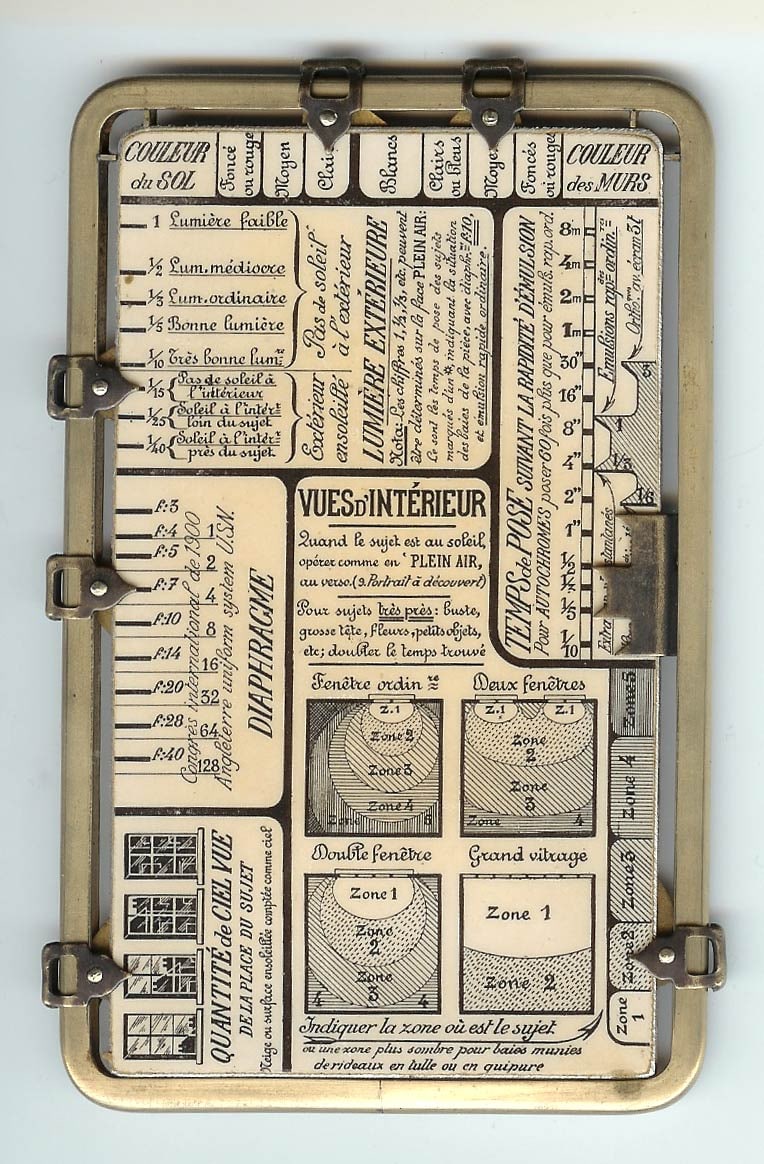 COULEUR
du SOL
Foncé
ou rouge
Moyen
Clair
Blancs
Clairs
ou bleus
Moyen
Foncés
où rouges
COULEUR
des MURS
1 Lumière faible
1/2 Lum. médiocre
1/3 Lum. ordinaire
1/5 Bonne lumière
1/10 Très bonne lumre
Pas de soleil
à l'extérieur
1/15 Pas de soleil à
l'intérieur
1/25 Soleil à l'intérr
loin du sujet
1/40 Soleil à l'intérr
près du sujet
Extérieur
ensoleillé
LUMIÈRE EXTÉRIEURE
Nota: Les chiffres 1, 1/2, 1/3, etc, peuvent
être déterminés sur la face PLEIN AIR:
Ce sont les temps de pose des sujets
marqués d'un *, indiquant la situation
des baies de la pièce, avec diaphr. = f:10,
et émulsion rapide ordinaire.
TEMPS de POSE SUIVANT LA RAPIDITÉ D'ÉMULSION
Pour AUTOCHROMES poser 60 fois plus que pour émuls. rap. ord.
8m
4m
2m
1m
30"
16"
8"
4"
2"
1"
1/2
1/5
1/10
Emulsions rapdes ordin.res
Orthomes av. écran 3f
1
1/3
Extra
f:3
f:4
f:5
f:7
f:10
f:14
f:20
f:28
f:40
1
2
4
8
16
32
64
128
Congrès international de 1900
Angleterre uniform system U.S.Nº
DIAPHRAGME
VUES D'INTÉRIEUR
Quand le sujet est au soleil,
opérer comme en PLEIN AIR,
au verso. (9. Portrait à découvert)
Pour sujets très près: buste,
grosse tête, fleurs, petits objets,
etc; doubler le temps trouvé
Fenêtre ordinre
Z.1
Zone 2
Zone 3
Zone 4
Zone 5
Deux fenêtres
Z.1
Z.1
Zone
2
Zone
3
Zone 4
Double fenêtre
Zone 1
Zone
2
Zone
3
4
4
Grand vitrage
Zone 1
Zone 2
Indiquer la zone où est le sujet
ou une zone plus sombre pour baies munies
de rideaux en tulle ou en guipure
Zone 5
Zone 4
Zone 3
Zone 2
Zone
1
QUANTITÉ de CIEL VUE
DE LA PLACE DU SUJET
Neige ou surface ensoleillée comptée comme ciel